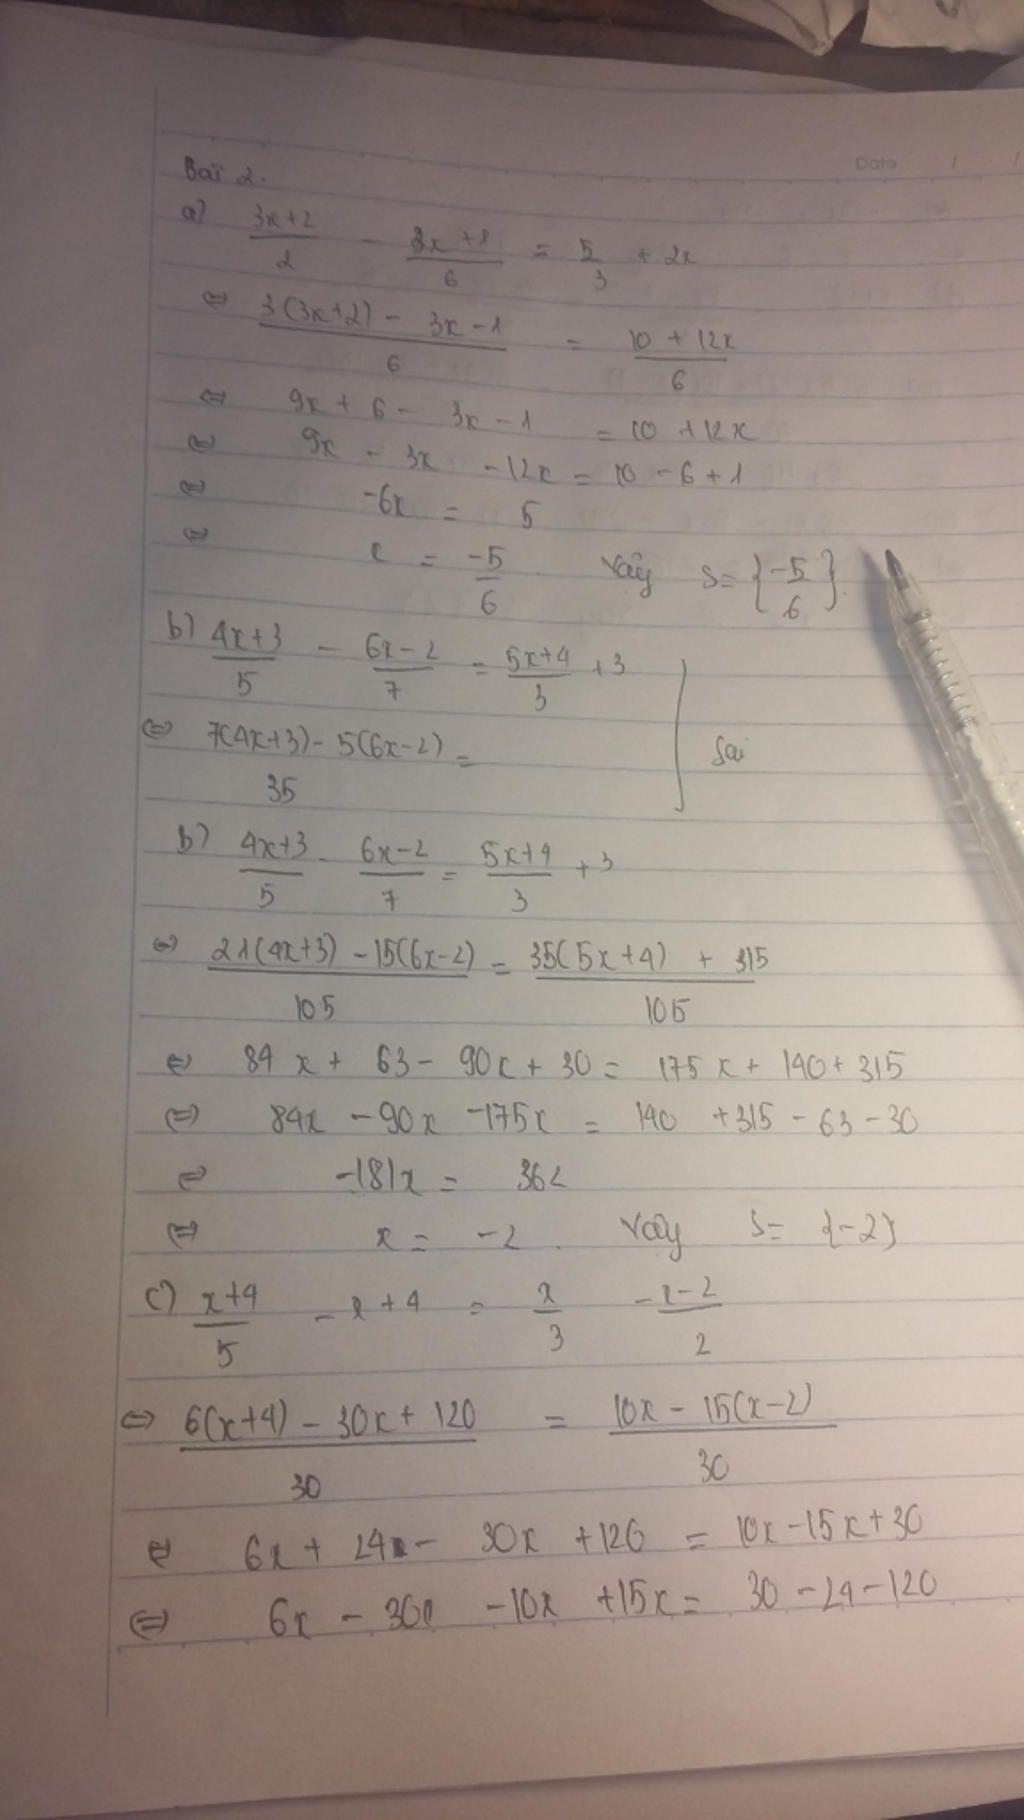 Date / /
Bài 2.
a) (3x+2)/2 - (3x+1)/6 = 5/3 + 2x
⇔ (3(3x+2) - 3x - 1)/6 = (10 + 12x)/6
⇔ 9x + 6 - 3x - 1 = 10 + 12x
⇔ 9x - 3x - 12x = 10 - 6 + 1
⇔ -6x = 5
⇔ x = -5/6 Vậy S = {-5/6}.
b) (4x+3)/5 - (6x-2)/7 = (5x+4)/3 + 3
⇔ (7(4x+3) - 5(6x-2))/35 = Sai
b) (4x+3)/5 - (6x-2)/7 = (5x+4)/3 + 3
⇔ (21(4x+3) - 15(6x-2))/105 = (35(5x+4) + 315)/105
⇔ 84x + 63 - 90x + 30 = 175x + 140 + 315
⇔ 84x - 90x - 175x = 140 + 315 - 63 - 30
⇔ -181x = 362
⇔ x = -2. Vậy S = {-2}
c) (x+4)/5 - x + 4 = x/3 - (x-2)/2
⇔ (6(x+4) - 30x + 120)/30 = (10x - 15(x-2))/30
⇔ 6x + 24 - 30x + 120 = 10x - 15x + 30
⇔ 6x - 30x - 10x + 15x = 30 - 24 - 120